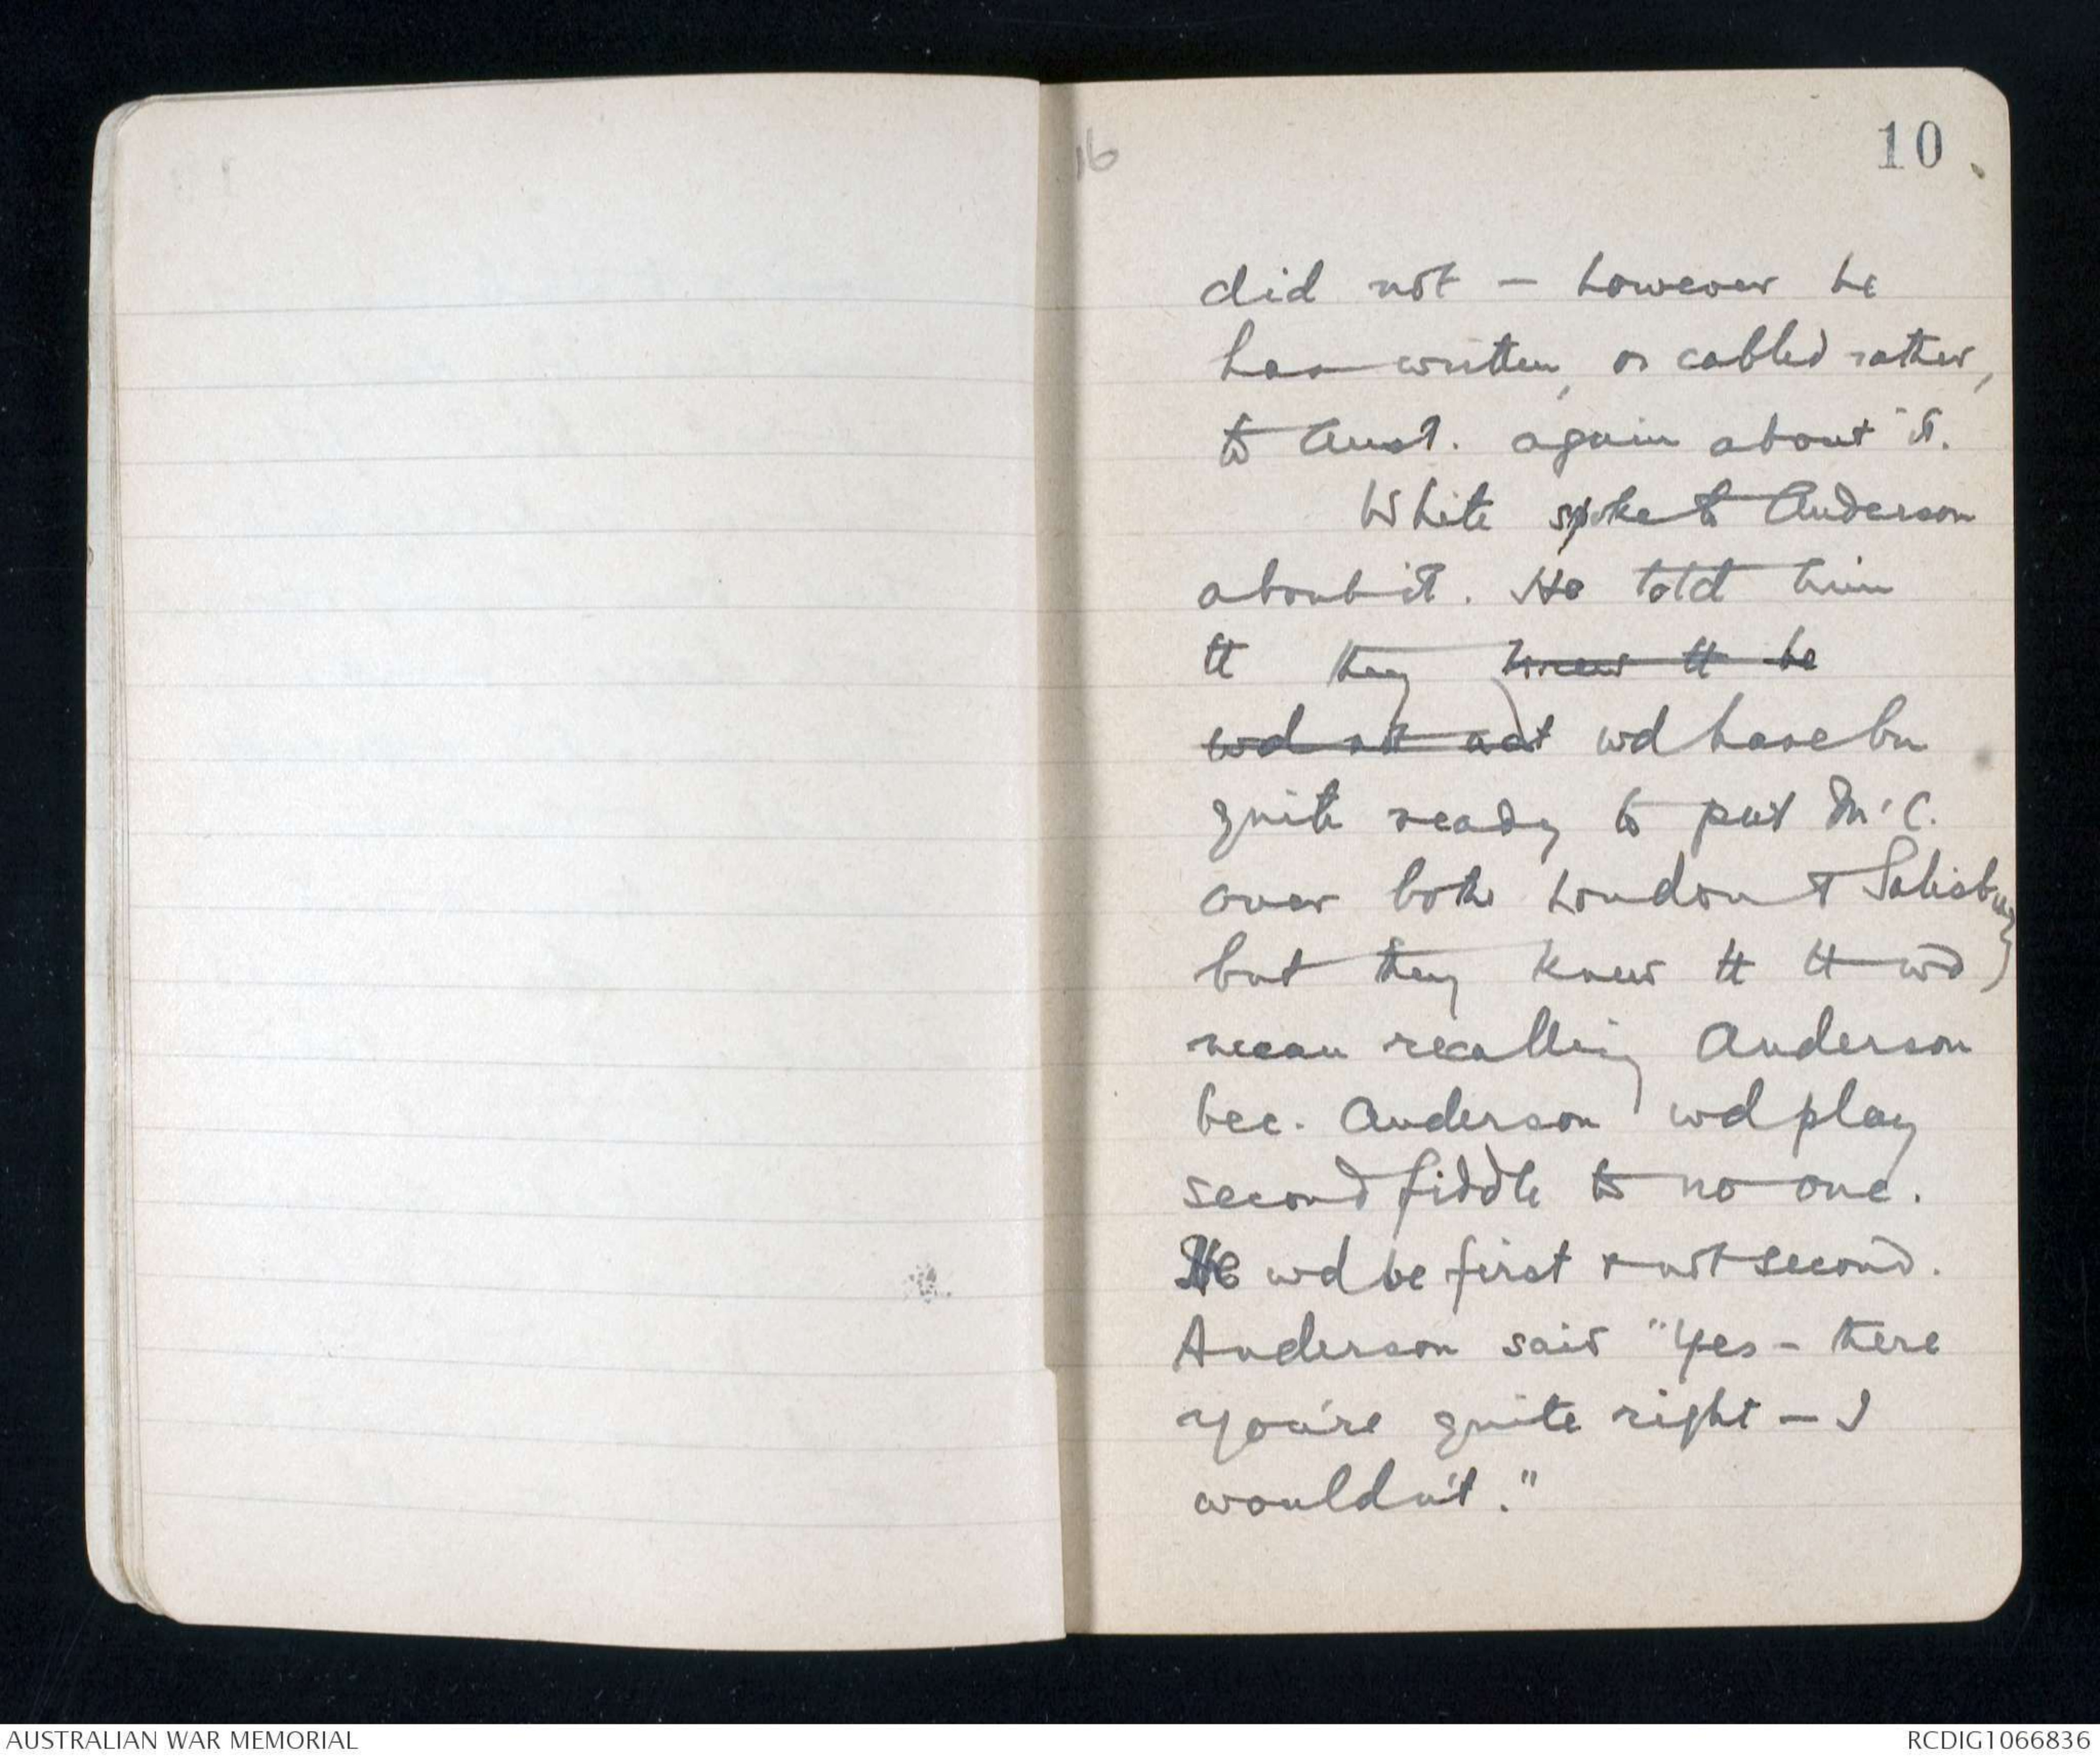 16
10
did not — however he
has written, or cabled rather,
to Aust. again about it.
White spoke to Anderson
about it. He told him
tt they knew tt he
wd not act wd have bn
quite ready to put M'C.
over both London & Salisbury
but they knew tt tt wd
mean recalling Anderson
bec. Anderson wd play
second fiddle to no one.
He wd be first & not second.
Anderson said "Yes – there
you're quite right – I
wouldn't."
AUSTRALIAN WAR MEMORIAL
RCDIG1066836